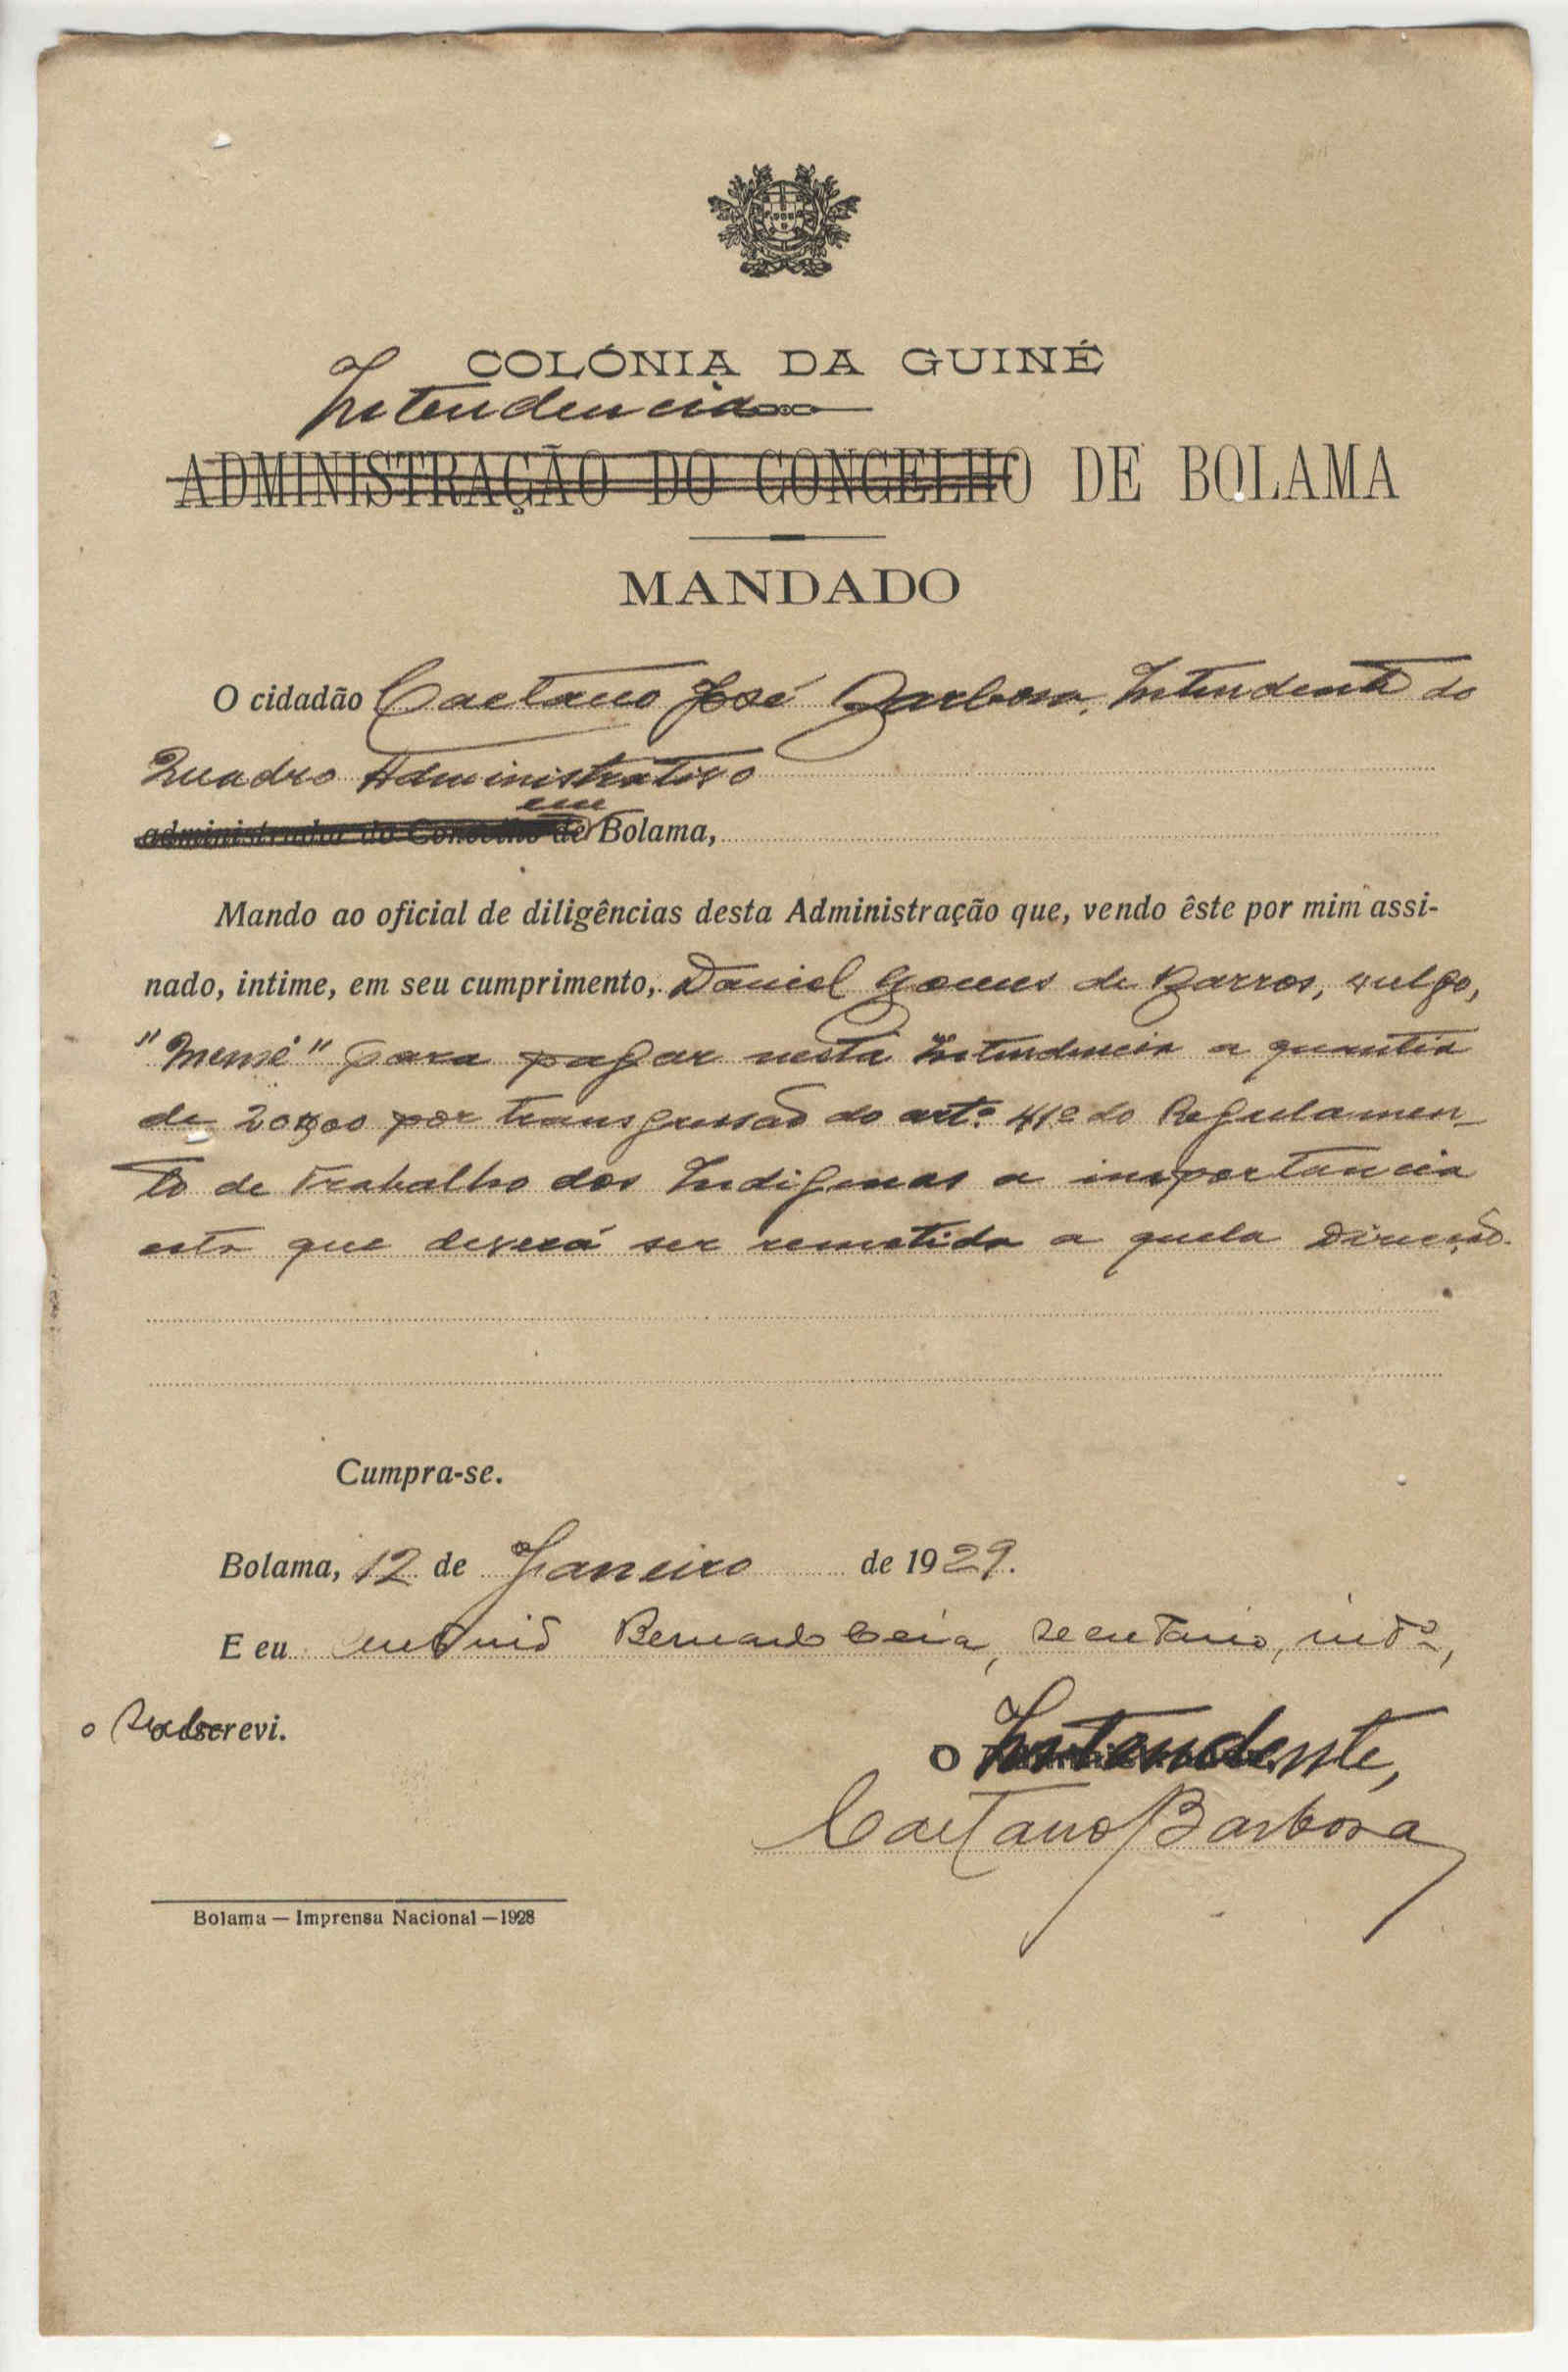 COLÓNIA DA GUINÉ
Intendencia
ADMINISTRAÇÃO DO CONCELHO DE BOLAMA
MANDADO
O cidadão Caetano José Barbosa, Intendente do
Quadro Administrativo
em
administrador do Concelho de Bolama,
Mando ao oficial de diligências desta Administração que, vendo êste por mim assi-
nado, intime, em seu cumprimento, Daniel Gomes de Barros, vulgo,
para pagar nesta Intendencia a quantia
de 20$00 por transgressão do artº 41º do Regulamen-
to de Trabalho dos Indigenas a importancia
esta que deverá ser remetida a quela Direcção.
Cumpra-se.
Bolama, 12 de Janeiro de 1929.
E eu Antonio Bernardo secretario, intº,
o subscrevi.
O Intendente,
Caetano Barbosa
Bolama — Imprensa Nacional — 1928